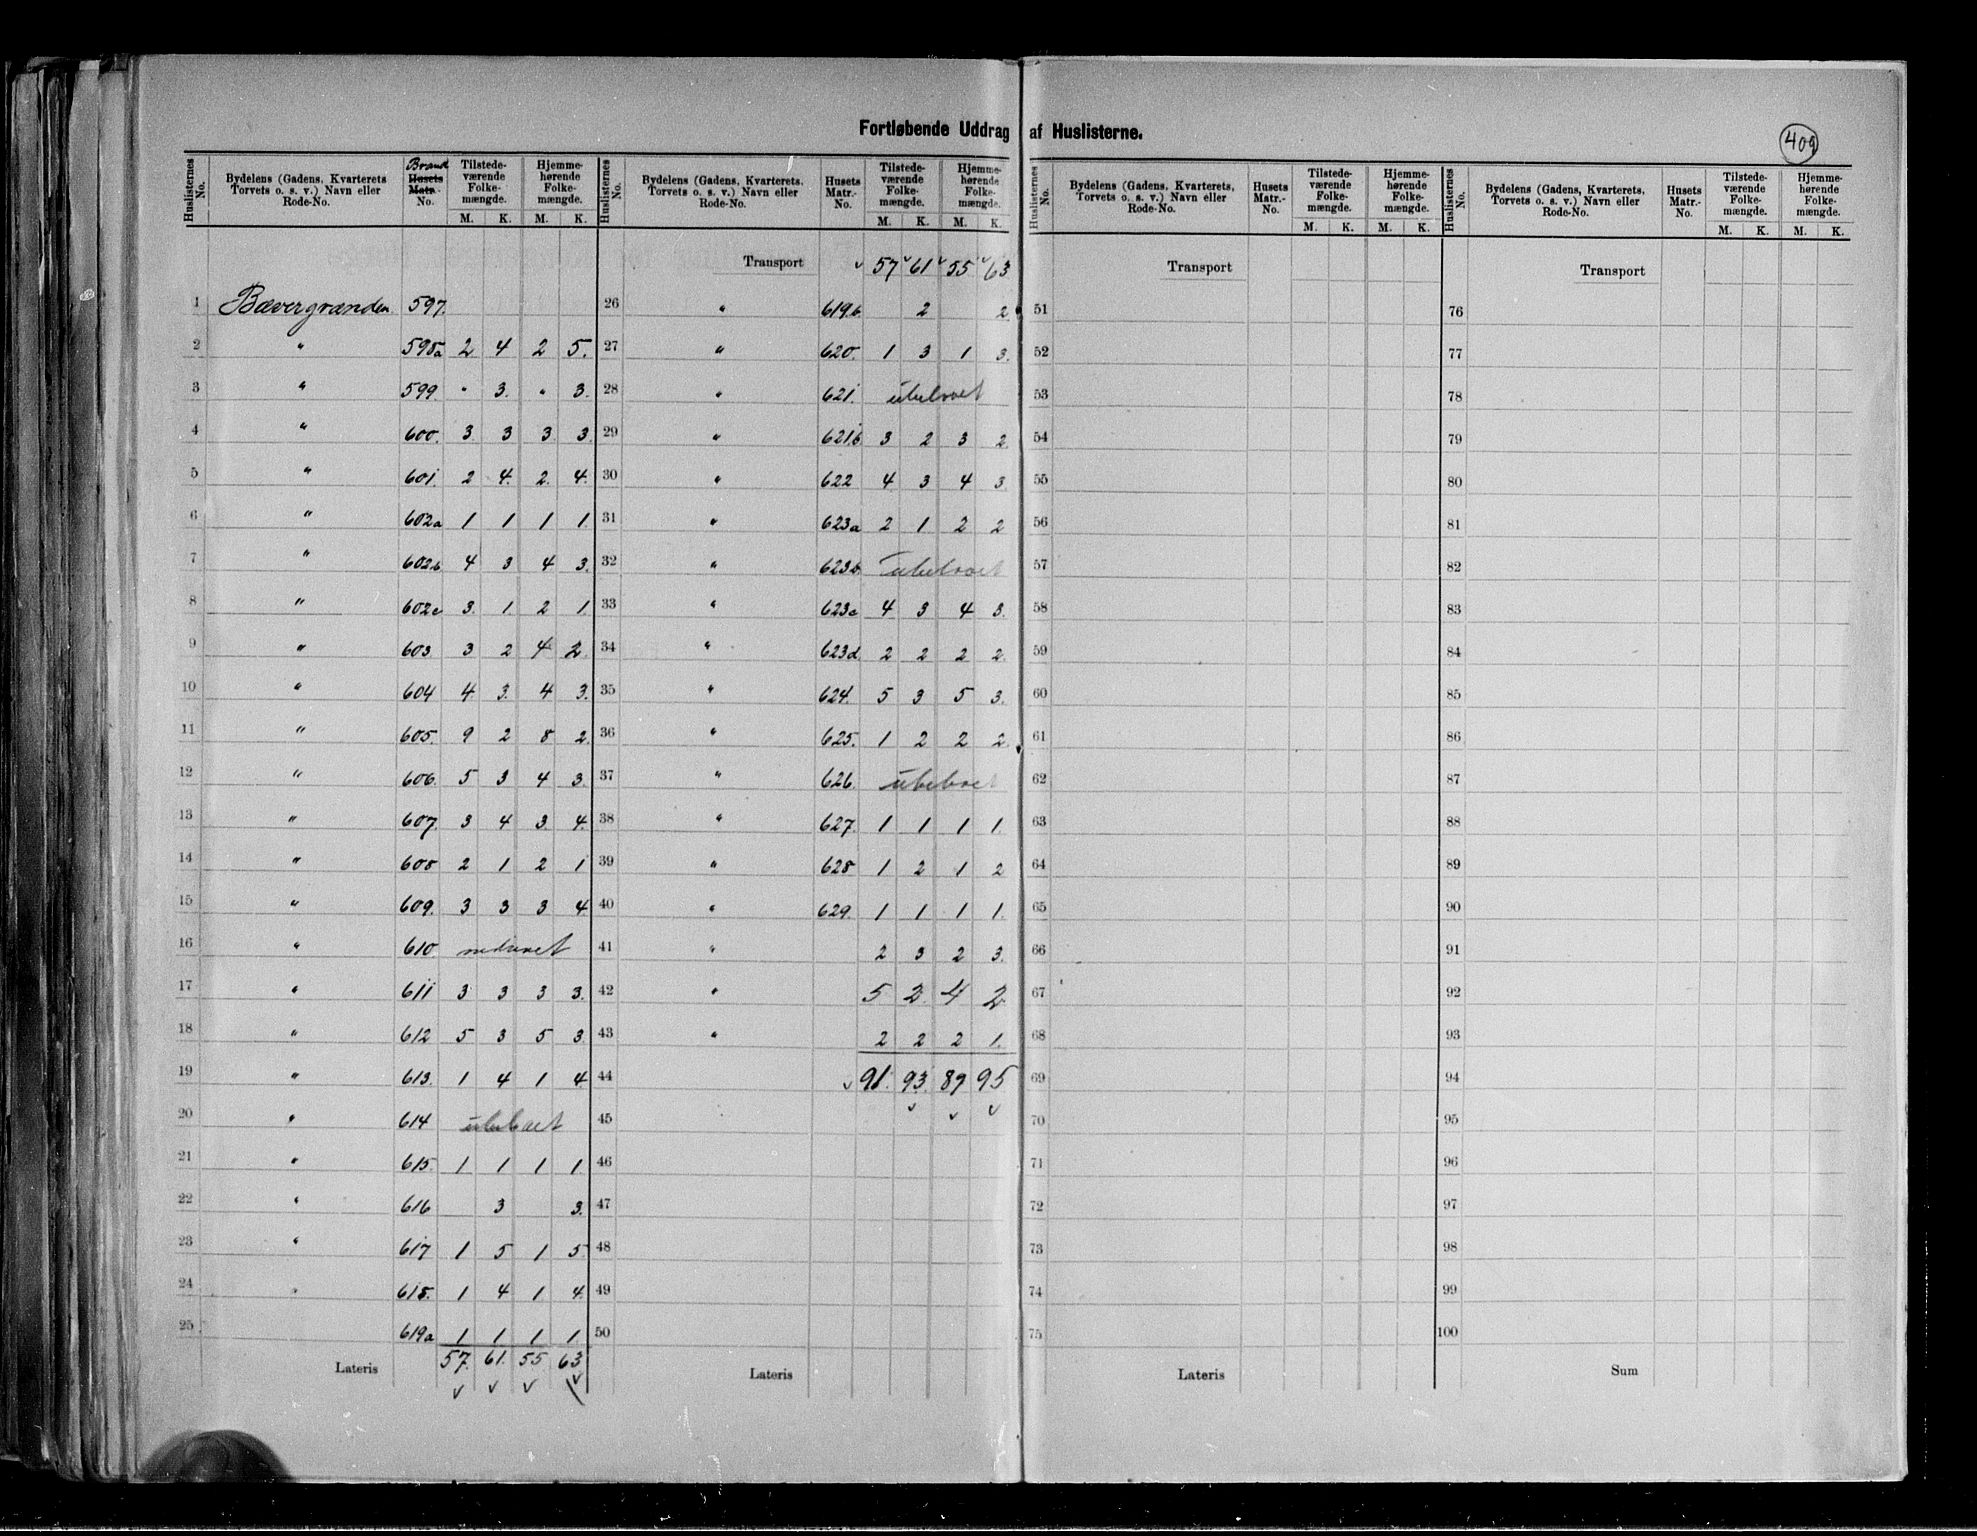 Fortløbende Uddrag af Huslisterne.
409
Huslisternes No. | Bydelens (Gadens, Kvarterets Torvets o. s. v.) Navn eller Rode-No. | Brand Husets Matr. No. | Tilstede-værende Folke-mængde. M. K. | Hjemme-hørende Folke-mængde. M. K.
1 Bævergrænden 597.
2 " 598a 2 4 2 5.
3 " 599. " 3. " 3.
4 " 600. 3 3 3 3.
5 " 601. 2 4. 2. 4.
6 " 602a 1 1 1 1.
7 " 602b 4 3 4 3.
8 " 602c 3. 1. 2 1.
9 " 603 3 2 4 2.
10 " 604 4. 3. 4 3.
11 " 605. 9 2 8 2.
12 " 606. 5 3 4 3.
13 " 607. 3 4 3. 4.
14 " 608 2 1 2 1
15 " 609. 3 3 3 4
16 " 610. nedrevet
17 " 611 3 3 3 3.
18 " 612 5 3 5 3.
19 " 613. 1 4 1 4
20 " 614 ubeboet
21 " 615. 1 1 1 1
22 " 616 3 3.
23 " 617 1 5 1 5.
24 " 618. 1 4 1 4.
25 619a 1 1 1 1.
Lateris 57. 61. 55 63
Huslisternes No. | Bydelens (Gadens, Kvarterets, Torvets o. s. v.) Navn eller Rode-No. | Husets Matr.-No. | Tilstede-værende Folke-mængde. M. K. | Hjemme-hørende Folke-mængde. M. K.
Transport 57 61 55 63
26 " 619b 2 2
27 " 620. 1 3 1 3.
28 " 621. ubeboet
29 " 621b 3 2 3 2
30 " 622 4 3 4 3
31 " 623a 2 1 2 2
32 " 623b ubeboet
33 " 623c 4 3 4 3.
34 " 623d 2 2 2 2.
35 " 624. 5 3 5 3.
36 " 625. 1 2 2 2.
37 " 626. ubeboet
38 " 627. 1 1 1 1.
39 " 628 1 2 1 2
40 " 629. 1 1 1 1.
41 " 2 3 2 3.
42 " 5 2. 4 2
43 " 2 2 2 1.
44 91. 93. 89 95
45
46
47
48
49
50
Lateris
Huslisternes No. | Bydelens (Gadens, Kvarterets, Torvets o. s. v.) Navn eller Rode-No. | Husets Matr.-No. | Tilstede-værende Folke-mængde. M. K. | Hjemme-hørende Folke-mængde. M. K.
Transport
51
52
53
54
55
56
57
58
59
60
61
62
63
64
65
66
67
68
69
70
71
72
73
74
75
Lateris
Huslisternes No. | Bydelens (Gadens, Kvarterets, Torvets o. s. v.) Navn eller Rode-No. | Husets Matr.-No. | Tilstede-værende Folke-mængde. M. K. | Hjemme-hørende Folke-mængde. M. K.
Transport
76
77
78
79
80
81
82
83
84
85
86
87
88
89
90
91
92
93
94
95
96
97
98
99
100
Sum